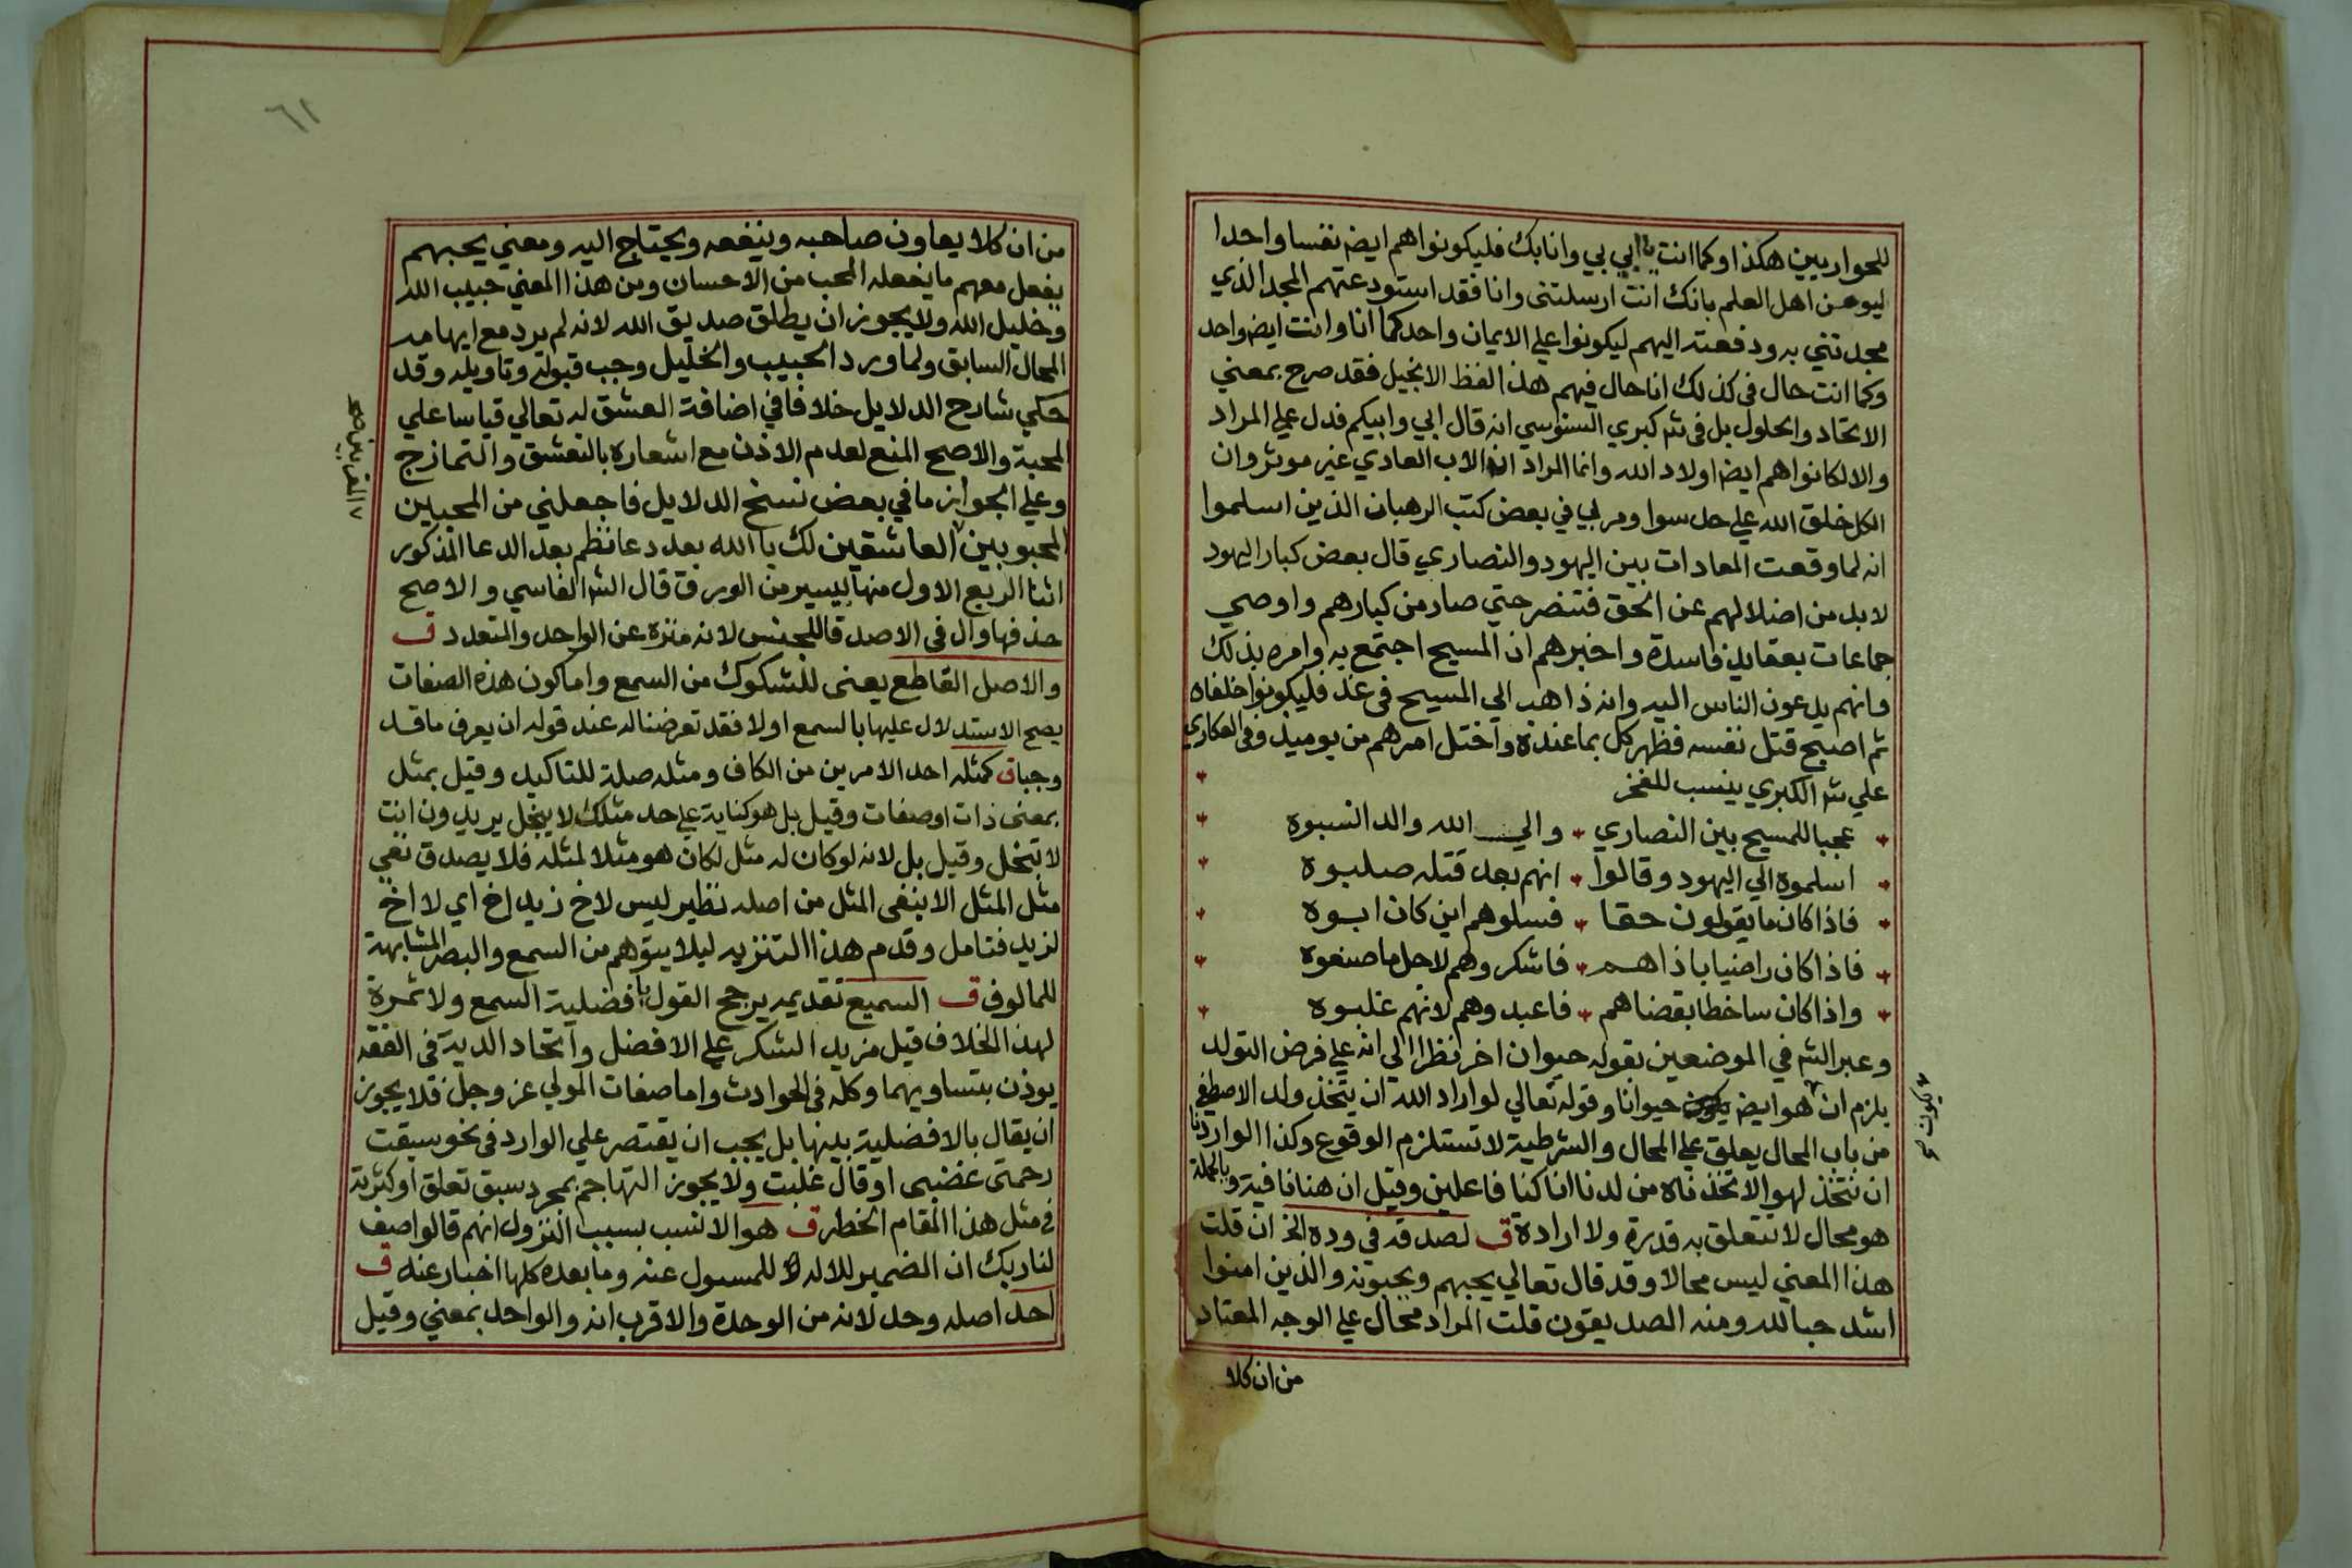 للحواريين هكذا وكما انت يا ابي بي وانا بك فليكونوا هم ايضا نفسا واحدا
ليومن اهل العلم بانك انت ارسلتني وانا فقد استودعتهم المجد الذي
مجدتني به ودفعته اليهم ليكونوا علي الايمان واحد كما انا وانت ايض واحد
وكما انت حال في كذلك انا حال فيهم هذا لفظ الانجيل فقد صرح بمعني
الاتحاد والحلول بل في شر كبري السنوسي انه قال ابي وابيكم فدل علي المراد
والا لكانوا هم ايض اولاد الله وانما المراد ان الاب العادي غير موثر وان
الكل خلق الله علي حد سوا ومر بي في بعض كتب الرهبان الذين اسلموا
انه لما وقعت المعادات بين اليهود والنصاري قال بعض كبار اليهود
لا بد من اضلالهم عن الحق فتنصر حتي صار من كبارهم واوصي
جماعات بعقايد فاسدة واخبرهم ان المسيح اجتمع به وامره بذلك
وانهم يدعون الناس اليه وانه ذاهب الي المسيح في غد فليكونوا خلفاه
ثم اصبح قتل نفسه فظهر كل بما عنده واختل امرهم من يوميذ وفي العكاري
علي شر الكبري ينسب للفخر
عجبا للمسيح بين النصاري والي الله والدا نسبوه
اسلموه الي اليهود وقالوا انهم بعد قتله صلبوه
فاذا كان ما يقولون حقا فسلوهم اين كان ابوه
فاذا كان راضيا باذاهم فاشكروهم لاجل ما صنعوه
واذا كان ساخطا بقضاهم فاعبدوهم لانهم غلبوه
وعبر الش في الموضعين بقوله حيوان اخر نظرا الي انه علي فرض التولد
يلزم ان هو ايض حيوانا وقوله تعالي لو اراد الله ان يتخذ ولدا لاصطفي
من باب المحال يعلق علي المحال والشرطية لا تستلزم الوقوع وكذا الوارد نا
ان نتخذ لهوا لاتخذناه من لدنا ان كنا فاعلين وقيل ان هنا نافية وبالجملة
هو محال لا تتعلق به قدرة ولا ارادة ق لصدقه في وده الخ ان قلت
هذا المعني ليس محالا وقد قال تعالي يحبهم ويحبونه والذين امنوا
اشد حبا لله ومنه الصديقون قلت المراد محال علي الوجه المعتاد
من ان كلا
يكون صح
٦١
من ان كلا يعاون صاحبه وينفعه ويحتاج اليه ومعني يحبهم
يفعل معهم ما يفعله المحب من الاحسان ومن هذا المعني حبيب الله
وخليل الله ولا يجوز ان يطلق صديق الله لانه لم يرد مع ايهامه
المحال السابق ولما ورد الحبيب والخليل وجب قبوله وتاويله وقد
حكي شارح الدلايل خلافا في اضافة العشق له تعالي قياسا علي
المحبة والاصح المنع لعدم الاذن مع اشعاره بالتعشق والتمازج
وعلي الجواز ما في بعض نسخ الدلايل فاجعلني من المحبين
المحبوبين العاشقين لك يا الله بعد دعا نظم بعد الدعا المذكور
اثنا الربع الاول منها بيسير من الورق قال الش الفاسي والاصح
حذفها وال في الاصدقا للجنس لانه منزه عن الواحد والمتعدد ق
والاصل القاطع يعني للشكوك من السمع واما كون هذه الصفات
يصح الاستدلال عليها بالسمع اولا فقد تعرضنا له عند قوله ان يعرف ما قد
وجبا ق كمثله احد الامرين من الكاف ومثله صلة للتاكيد وقيل بمثل
بمعني ذات او صفات وقيل بل هو كناية علي حد مثلك لا يبخل يريدون انت
لا تبخل وقيل بل لانه لو كان له مثل لكان هو مثلا لمثله فلا يصدق نفي
مثل المثل الا بنفي المثل من اصله نظير ليس لاخ زيد اخ اي لا اخ
لزيد فتامل وقدم هذا التنزيه ليلا يتوهم من السمع والبصر المشابهة
للمالوف ق السميع تقديمه يرجح القول بافضلية السمع ولا ثمرة
لهذا الخلاف قيل مزيد الشكر علي الافضل واتحاد الدية في الفقه
يوذن بتساويهما وكله في الحوادث واما صفات المولي عز وجل فلا يجوز
ان يقال بالافضلية بينها بل يجب ان يقتصر علي الوارد في نحو سبقت
رحمتي غضبي او قال غلبت ولا يجوز التهاجم بمجرد سبق تعلق او كثرته
في مثل هذا المقام الخطر ق هو الانسب بسبب النزول انهم قالوا صف
لنا ربك ان الضمير للاله للمسول عنه وما بعده كلها اخبار عنه ق
احد اصله وحد لانه من الوحدة والاقرب انه والواحد بمعني وقيل